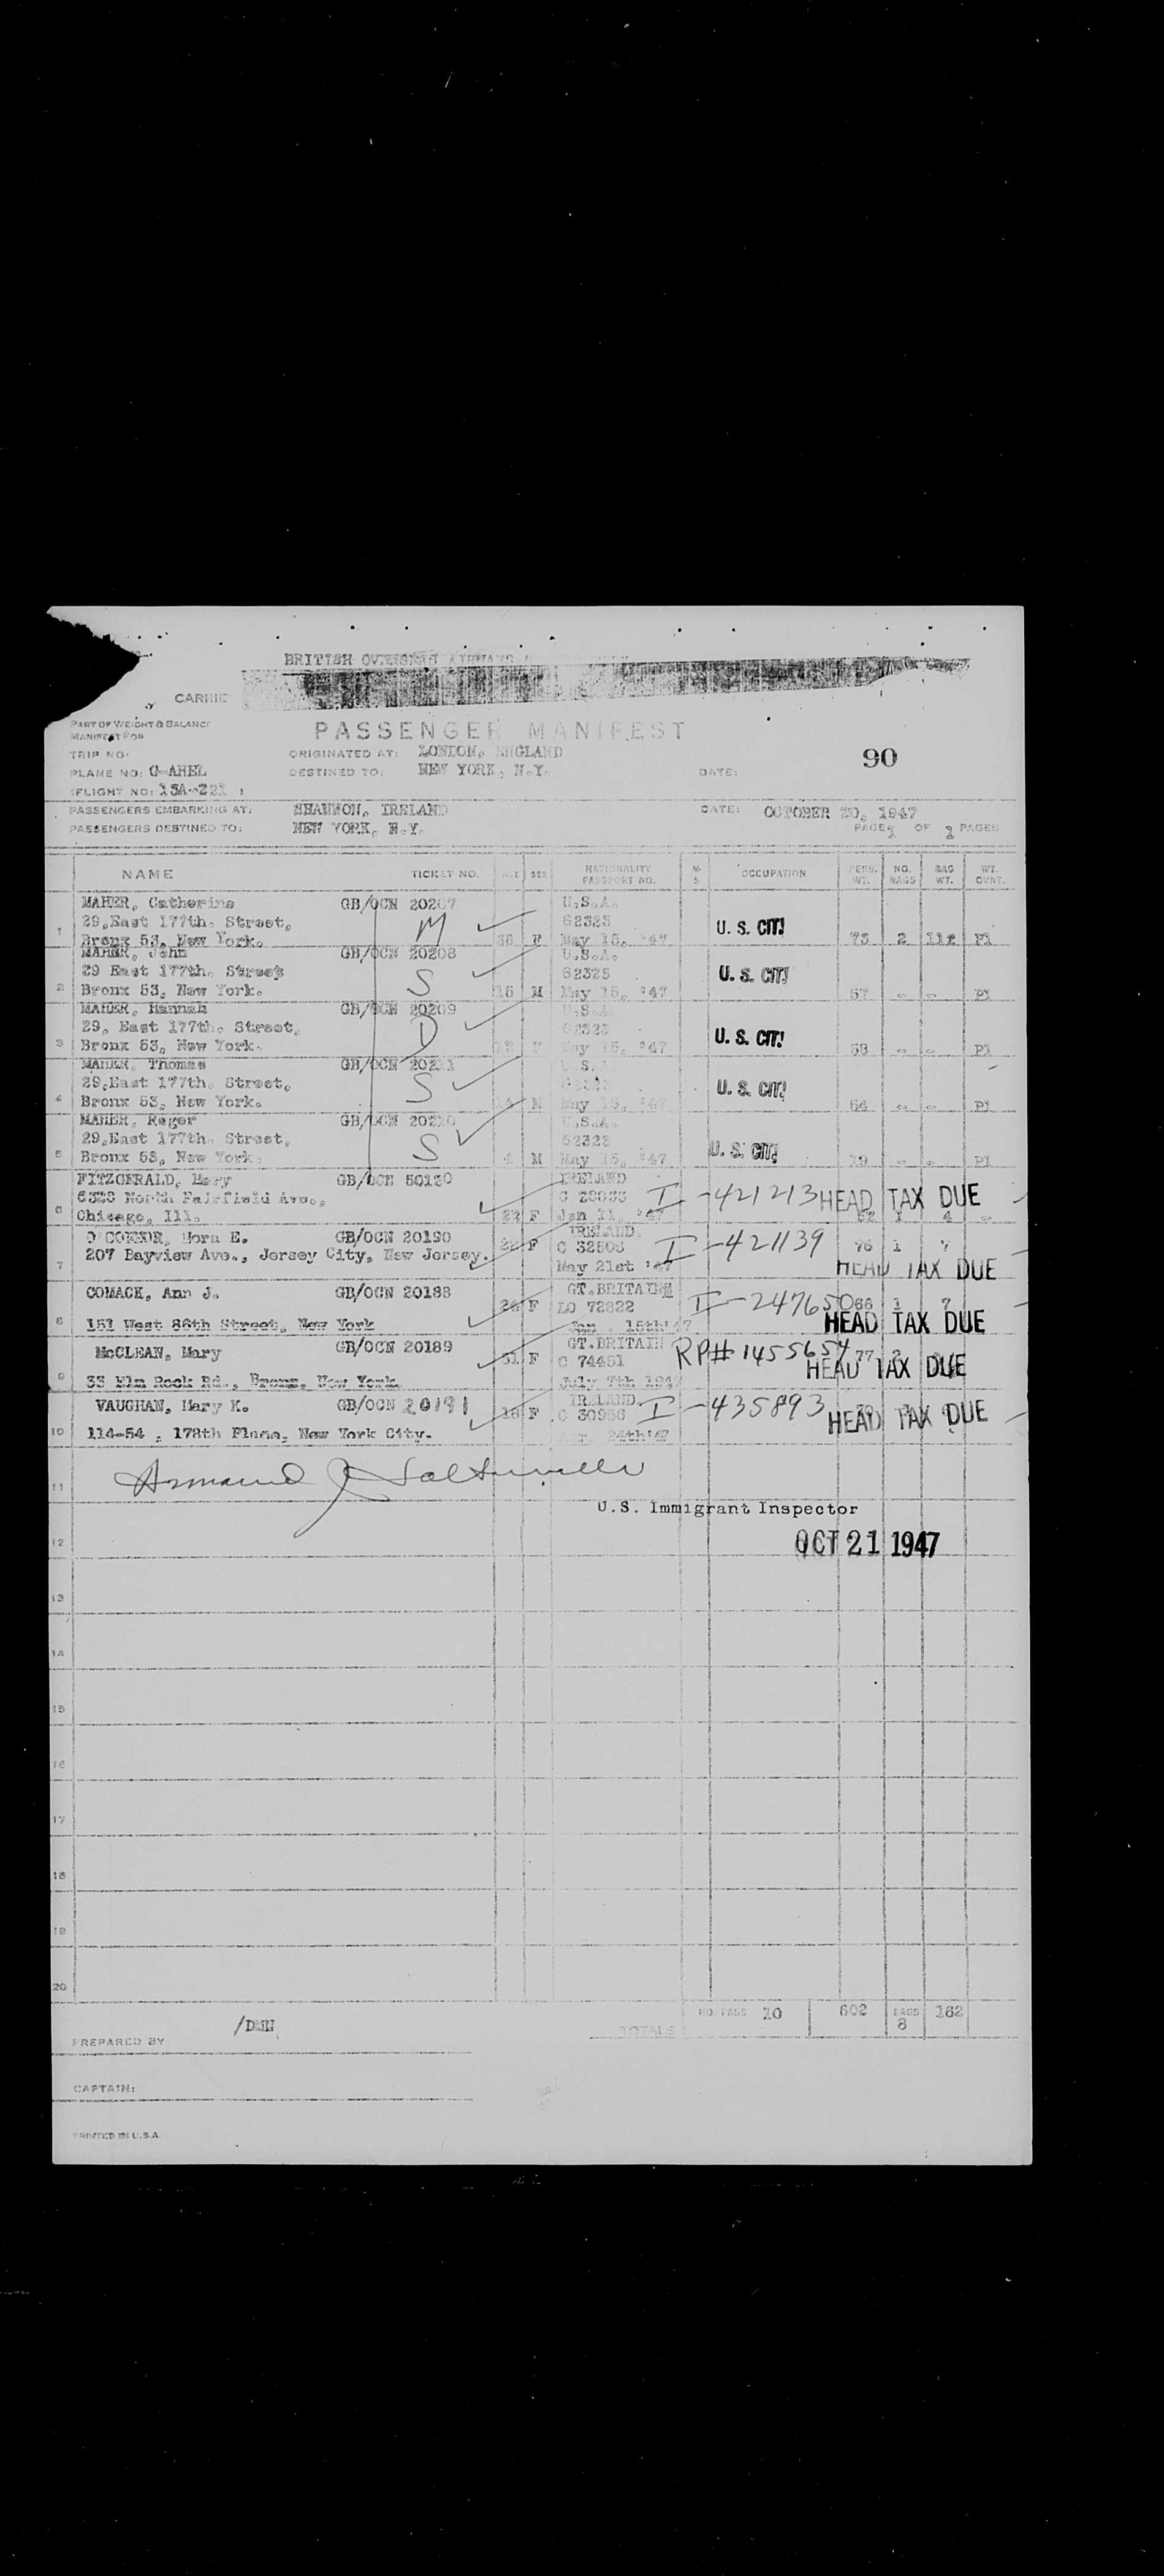 BRITISH OVERSEAS AIRWAYS
CARRIE
PART OF WEIGHT & BALANCE
MANIFEST FOR
PASSENGER MANIFEST
TRIP NO.
ORIGINATED AT: LONDON, ENGLAND
90
PLANE NO: G-AHEL
DESTINED TO: NEW YORK, N.Y.
DATE:
(FLIGHT NO: 13A-221 )
PASSENGERS EMBARKING AT: SHANNON, IRELAND
DATE: OCTOBER 20, 1947
PASSENGERS DESTINED TO: NEW YORK, N.Y.
PAGE 1 OF 1 PAGES
NAME TICKET NO. AGE SEX NATIONALITY PASSPORT NO. M S OCCUPATION PERS. WT. NO. BAGS BAG WT. WT. OVNT.
MAHER, Catherine GB/OCN 20207 U.S.A.
29,East 177th. Street, M 62323 U. S. CIT!
1 Bronx 53, New York. F May 15, '47 73 2 112 Pl
MAHER, John GB/OCN 20208 U.S.A.
29 East 177th. Street 62323 U. S. CIT!
2 Bronx 53, New York. S 15 M May 15, '47 57 - - Pl
MAHER, Hannah GB/OCN 20209 U.S.A.
29, East 177th. Street, D 62323 U. S. CIT!
3 Bronx 53, New York. F May 15, '47 58 - - Pl
MAHER, Thomas GB/OCN 20211 U.S.A.
29,East 177th. Street, S 62323 U. S. CIT!
4 Bronx 53, New York. M May 15, '47 54 - - Pl
MAHER, Roger GB/OCN 20210 U.S.A.
29,East 177th. Street, 62323 U. S. CIT!
5 Bronx 53, New York. S 4 M May 15, '47 19 - - Pl
FITZGERALD, Mary GB/OCN 50120 IRELAND
6329 North Fairfield Ave., I-421213 HEAD TAX DUE
6 Chicago, Ill. F Jan 11, '47 1 4 -
O'CONNOR, Nora E. GB/OCN 20190 IRELAND.
207 Bayview Ave., Jersey City, New Jersey. F C 32506 I-421139 76 1 7
7 May 21st '47 HEAD TAX DUE
COMACK, Ann J. GB/OCN 20188 GT.BRITAIN
F LO 72822 I-247650 66 1 7
8 151 West 86th Street, New York Jan. 15th'47 HEAD TAX DUE
McCLEAN, Mary GB/OCN 20189 GT.BRITAIN
51 F C 74451 RP# 1455654 77 HEAD TAX DUE
9 33 Elm Rock Rd., Bronx, New York. July 7th 1947
VAUGHAN, Mary K. GB/OCN 20191 IRELAND.
F C 30956 I-435893 HEAD TAX DUE
10 114-54 , 178th Place, New York City. 24th'47
11 Armand J
U.S. Immigrant Inspector
12 OCT 21 1947
13
14
15
16
17
18
19
20
NO. PASS 10 602 BAGS 8 162
TOTALS
PREPARED BY: /DMN
CAPTAIN:
PRINTED IN U.S.A.